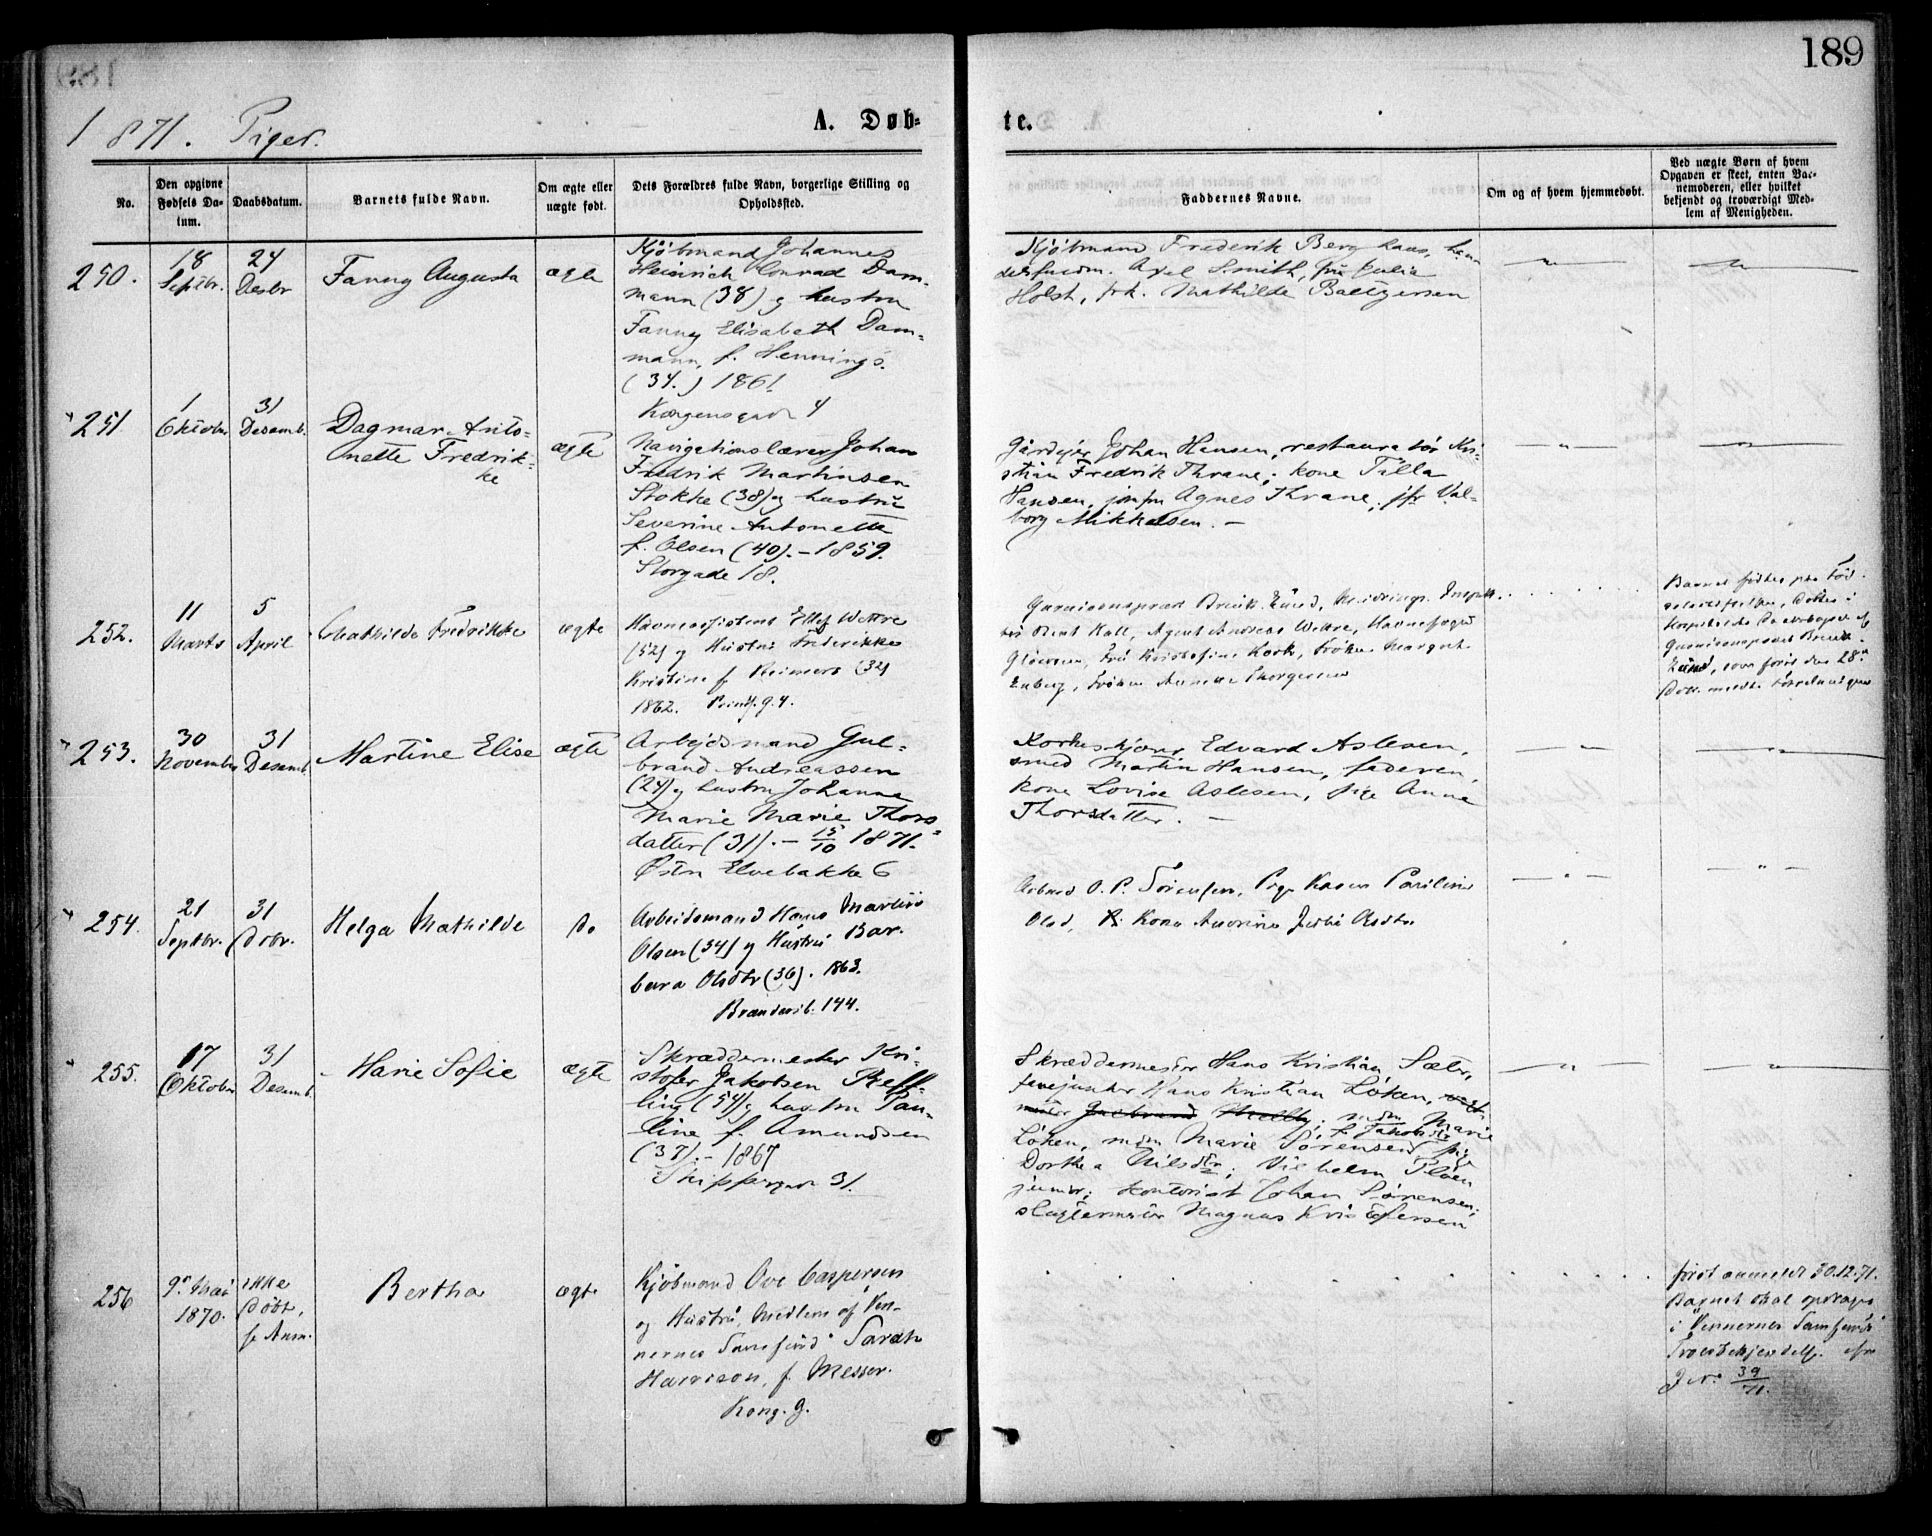 189
1871. Piger.
A. Døb-
te.
No.
Den opgivne
Fødsels Da-
tum.
Daabsdatum.
Barnets fulde Navn.
Om ægte eller
uægte født.
Dets Forældres fulde Navn, borgerlige Stilling og
Opholdssted.
Faddernes Navne.
Om og af hvem hjemmedøbt.
Ved uægte Børn af hvem
Opgaven er skeet, enten Bar-
nemoderen, eller hvilket
bekjendt og troværdigt Med-
lem af Menigheden.
250.
18
Septbr.
24
Desbr
Fanny Augusta
ægte
Kjøbmand Johannes
Heinrich Conrad Dam-
mann (38) og hustru
Fanny Elisabeth Dam-
mann, f. Hennings.
(34.) 1861
Kongensgade 4
Kjøbmand Frederik Berg
Axel Smith, fru Julie
Holst, frk. Mathilde
251
1
Oktober
31
Desemb.
Dagmar Anto-
nette Fredrik-
ke
ægte
Navigationslærer Johan
Fredrik Martinsen
Stokke (38) og hustru
Severine Antonette
f. Olsen (40). - 1859.
Storgade 18.
Gårdejer Johan Hansen, restauratør Kri-
stian Fredrik Thrane; kone Tilla
Hansen, jomfru Agnes Thrane; jfr Val-
borg Mikkelsen. -
252.
11
Marts
5
April
Mathilde Fredrikke
ægte
Havneassistent Ellef Wettre
(52) og Hustru Frederikke
Kristine f. Reimers (32)
1862. Prinds. g. 4.
Garnisonsprest
Kall, Agent Andreas Wettre, Havnefoged
Frøken Margrete
Frøken
Barnet fødtes paa Fød-
selsstiftelsen, døbtes i
af
Garnisonsprest
som først den 28de
253.
30
November
31
Desemb.
Martine Elise
ægte
Arbejdsmand Gul-
brand Andreassen
(24) og hustru Johanne
Marie Marie Thors-
datter (31). - 15/10 1871.
Østre Elvebakke 6
Edvard Aslesen,
smed Martin Hansen, faderen,
kone Lovise Aslesen, pige Anne
Thorsdatter. -
254.
21
Septbr.
31
Dcbr.
Helga Mathilde
Do
Arbeidsmand Hans Martin
Olsen (34) og Hustru Bar-
bara Olsdtr (36). 1863.
144.
Arbmd O. P. Sørensen, Pige Karen
Olsd, Kone
255.
17
Oktober
31
Desemb.
Marie Sofie
ægte
Skræddermester Kri-
stofer Jakobsen Reff-
ling (54) og hustru Pau-
line f. Amundsen
(37). - 1867
Skippergade 31.
Skræddermester Hans Kristian Sæter,
Hans Kristian Løken,
Marie
Løken, mdm Marie Sørensen f. Jakobs
Dorthea Nilsdtr; Vilhelm
junior; kontorist Johan Sørensen;
slagtermester Magnus Kristofersen
256
9de Mai
1870.
ikke
døbt,
se Anm.
Bertha
ægte
Kjøbmand Ove Caspersen
og Hustru, Medlem af "Ven-
nernes Samfund" Sarah
Harrison, f. Messer.
Kong. g.
først anmeldt 30.12.71.
Barnet skal opdrages
i "Vennernes Samfunds"
Troesbekjendelse.
J No 39/71.